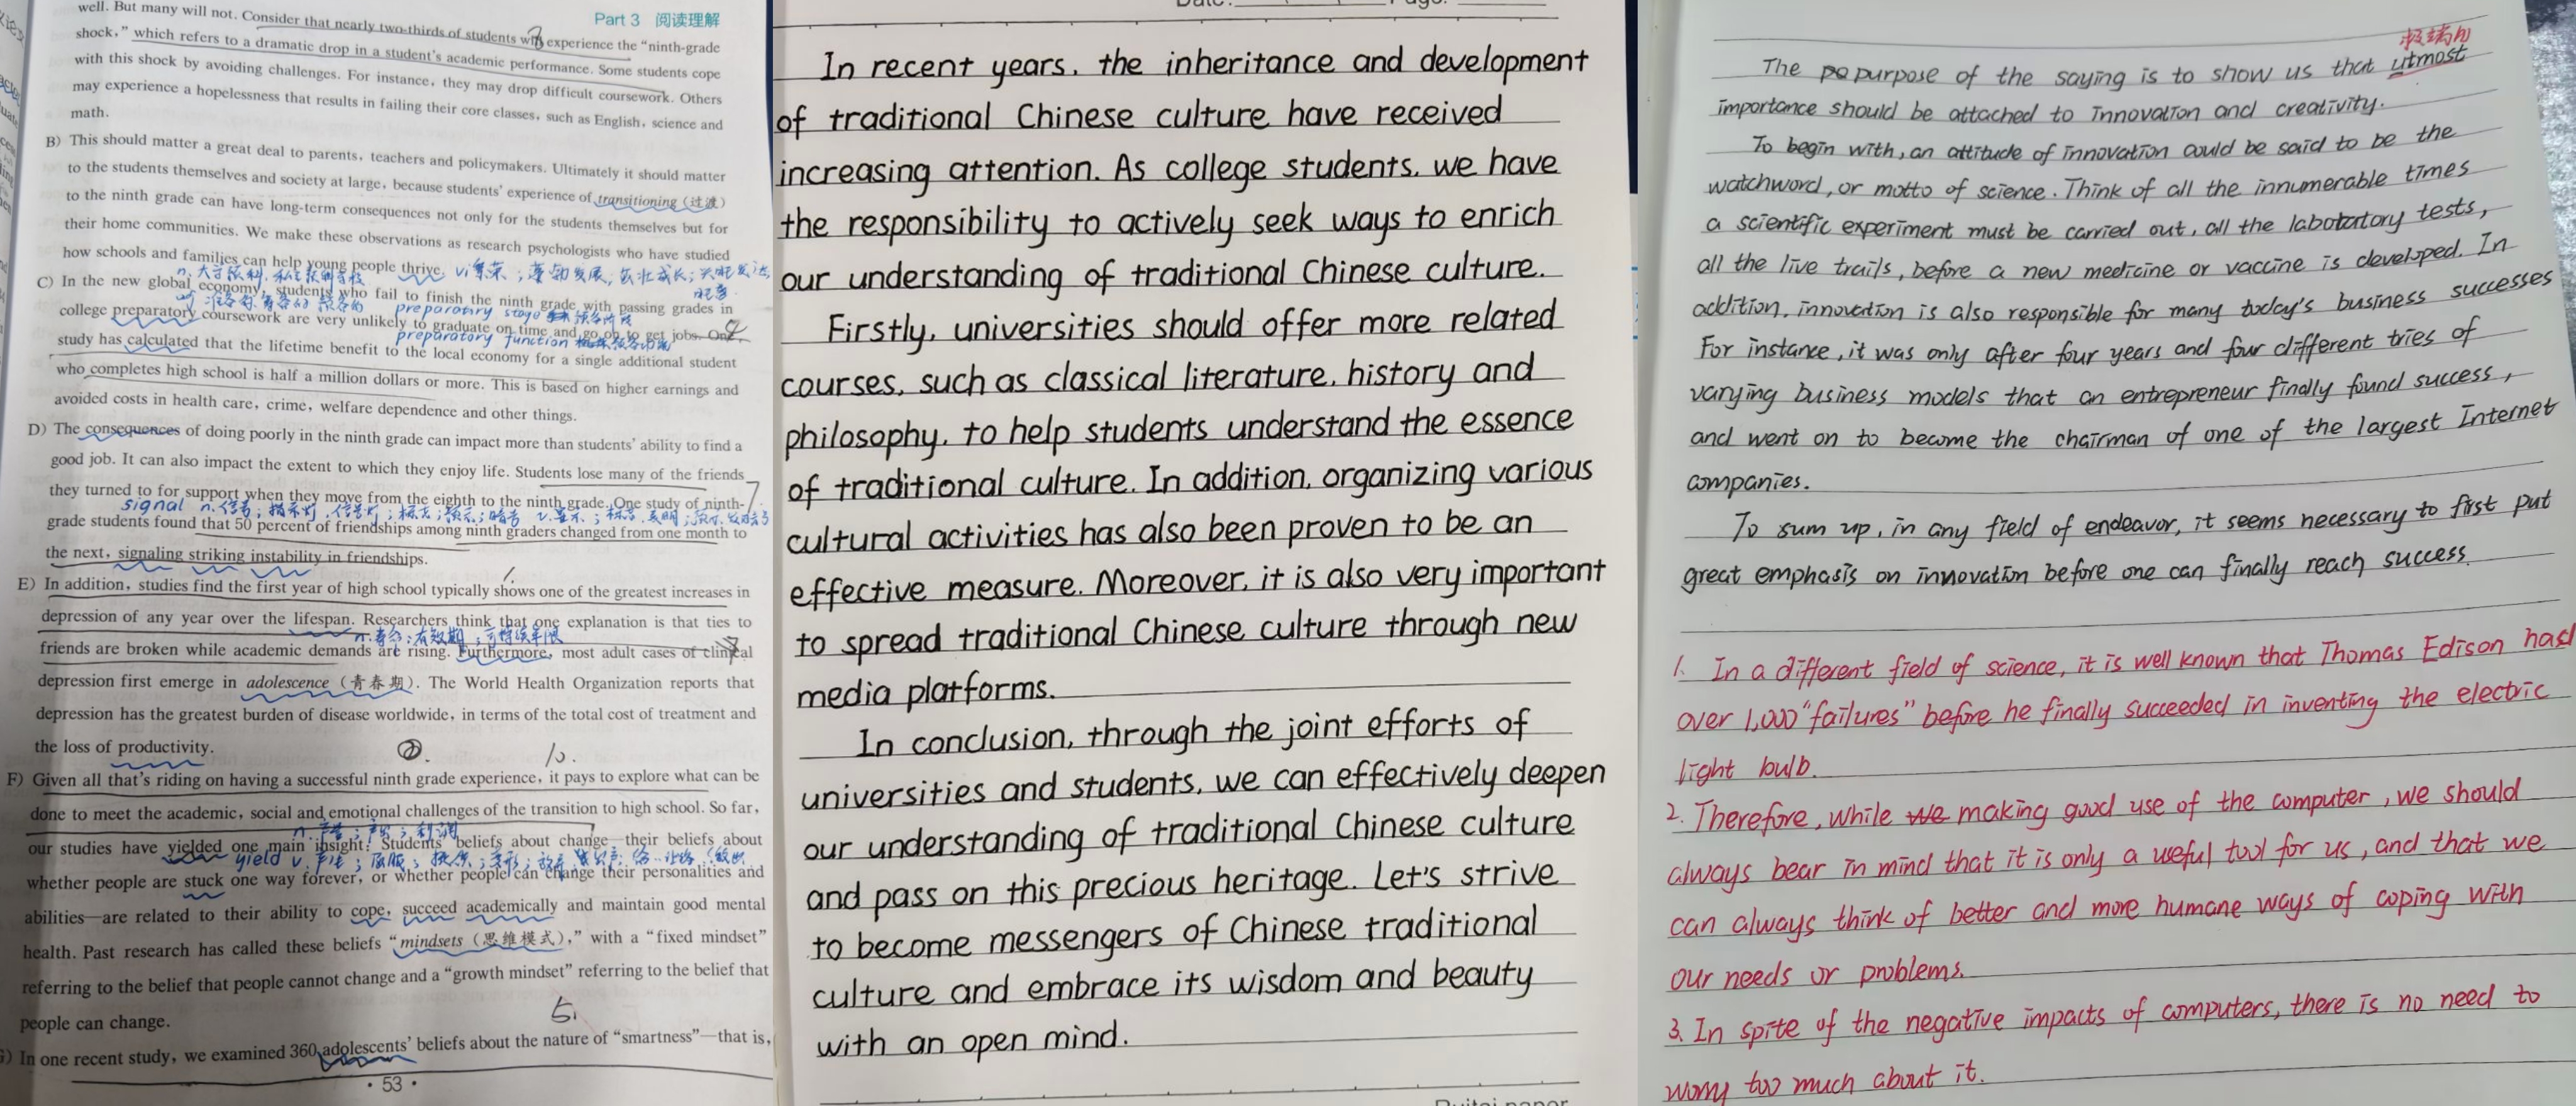 well. But many will not. Consider that nearly two-thirds of students will experience the "ninth-grade
Part 3 阅读理解
shock," which refers to a dramatic drop in a student's academic performance. Some students cope
with this shock by avoiding challenges. For instance, they may drop difficult coursework. Others
may experience a hopelessness that results in failing their core classes, such as English, science and
math.
B) This should matter a great deal to parents, teachers and policymakers. Ultimately it should matter
to the students themselves and society at large, because students' experience of transitioning (过渡)
to the ninth grade can have long-term consequences not only for the students themselves but for
their home communities. We make these observations as research psychologists who have studied
how schools and families can help young people thrive.
vi 繁荣；蓬勃发展，茁壮成长；
C) In the new global economy, students who fail to finish the ninth grade with passing grades in
preparatory stage 预备阶段
college preparatory coursework are very unlikely to graduate on time and go on to get jobs. One
preparatory function
study has calculated that the lifetime benefit to the local economy for a single additional student
who completes high school is half a million dollars or more. This is based on higher earnings and
avoided costs in health care, crime, welfare dependence and other things.
D) The consequences of doing poorly in the ninth grade can impact more than students' ability to find a
good job. It can also impact the extent to which they enjoy life. Students lose many of the friends
they turned to for support when they move from the eighth to the ninth grade. One study of ninth-
7
signal n. 信号；指示灯，信号灯；标志；预示；暗号 v.
grade students found that 50 percent of friendships among ninth graders changed from one month to
the next, signaling striking instability in friendships.
1.
E) In addition, studies find the first year of high school typically shows one of the greatest increases in
depression of any year over the lifespan. Researchers think that one explanation is that ties to
n. 寿命；有效期；可持续年限
friends are broken while academic demands are rising. Furthermore, most adult cases of clinical
depression first emerge in adolescence (青春期). The World Health Organization reports that
depression has the greatest burden of disease worldwide, in terms of the total cost of treatment and
the loss of productivity.
10.
F) Given all that's riding on having a successful ninth grade experience, it pays to explore what can be
done to meet the academic, social and emotional challenges of the transition to high school. So far,
n. 产量；产出；利润
our studies have yielded one main insight: Students' beliefs about change—their beliefs about
yield v. 产生；屈服；
whether people are stuck one way forever, or whether people can change their personalities and
abilities—are related to their ability to cope, succeed academically and maintain good mental
health. Past research has called these beliefs "mindsets (思维模式)," with a "fixed mindset"
referring to the belief that people cannot change and a "growth mindset" referring to the belief that
people can change.
5.
G) In one recent study, we examined 360 adolescents' beliefs about the nature of "smartness"—that is,
· 53 ·
In recent years, the inheritance and development
of traditional Chinese culture have received
increasing attention. As college students, we have
the responsibility to actively seek ways to enrich
our understanding of traditional Chinese culture.
Firstly, universities should offer more related
courses, such as classical literature, history and
philosophy, to help students understand the essence
of traditional culture. In addition, organizing various
cultural activities has also been proven to be an
effective measure. Moreover, it is also very important
to spread traditional Chinese culture through new
media platforms.
In conclusion, through the joint efforts of
universities and students, we can effectively deepen
our understanding of traditional Chinese culture
and pass on this precious heritage. Let's strive
to become messengers of Chinese traditional
culture and embrace its wisdom and beauty
with an open mind.
极端的
The po purpose of the saying is to show us that utmost
importance should be attached to innovation and creativity.
To begin with, an attitude of innovation could be said to be the
watchword, or motto of science. Think of all the innumerable times
a scientific experiment must be carried out, all the labotatory tests,
all the live trails, before a new medicine or vaccine is developed. In
addition, innovation is also responsible for many today's business successes
For instance, it was only after four years and four different tries of
varying business models that an entrepreneur finally found success,
and went on to become the chairman of one of the largest Internet
companies.
To sum up, in any field of endeavor, it seems necessary to first put
great emphasis on innovation before one can finally reach success.
1. In a different field of science, it is well known that Thomas Edison had
over 1,000 "failures" before he finally succeeded in inventing the electric
light bulb.
2. Therefore, while we making good use of the computer, we should
always bear in mind that it is only a useful tool for us, and that we
can always think of better and more humane ways of coping with
our needs or problems.
3. In spite of the negative impacts of computers, there is no need to
worry too much about it.